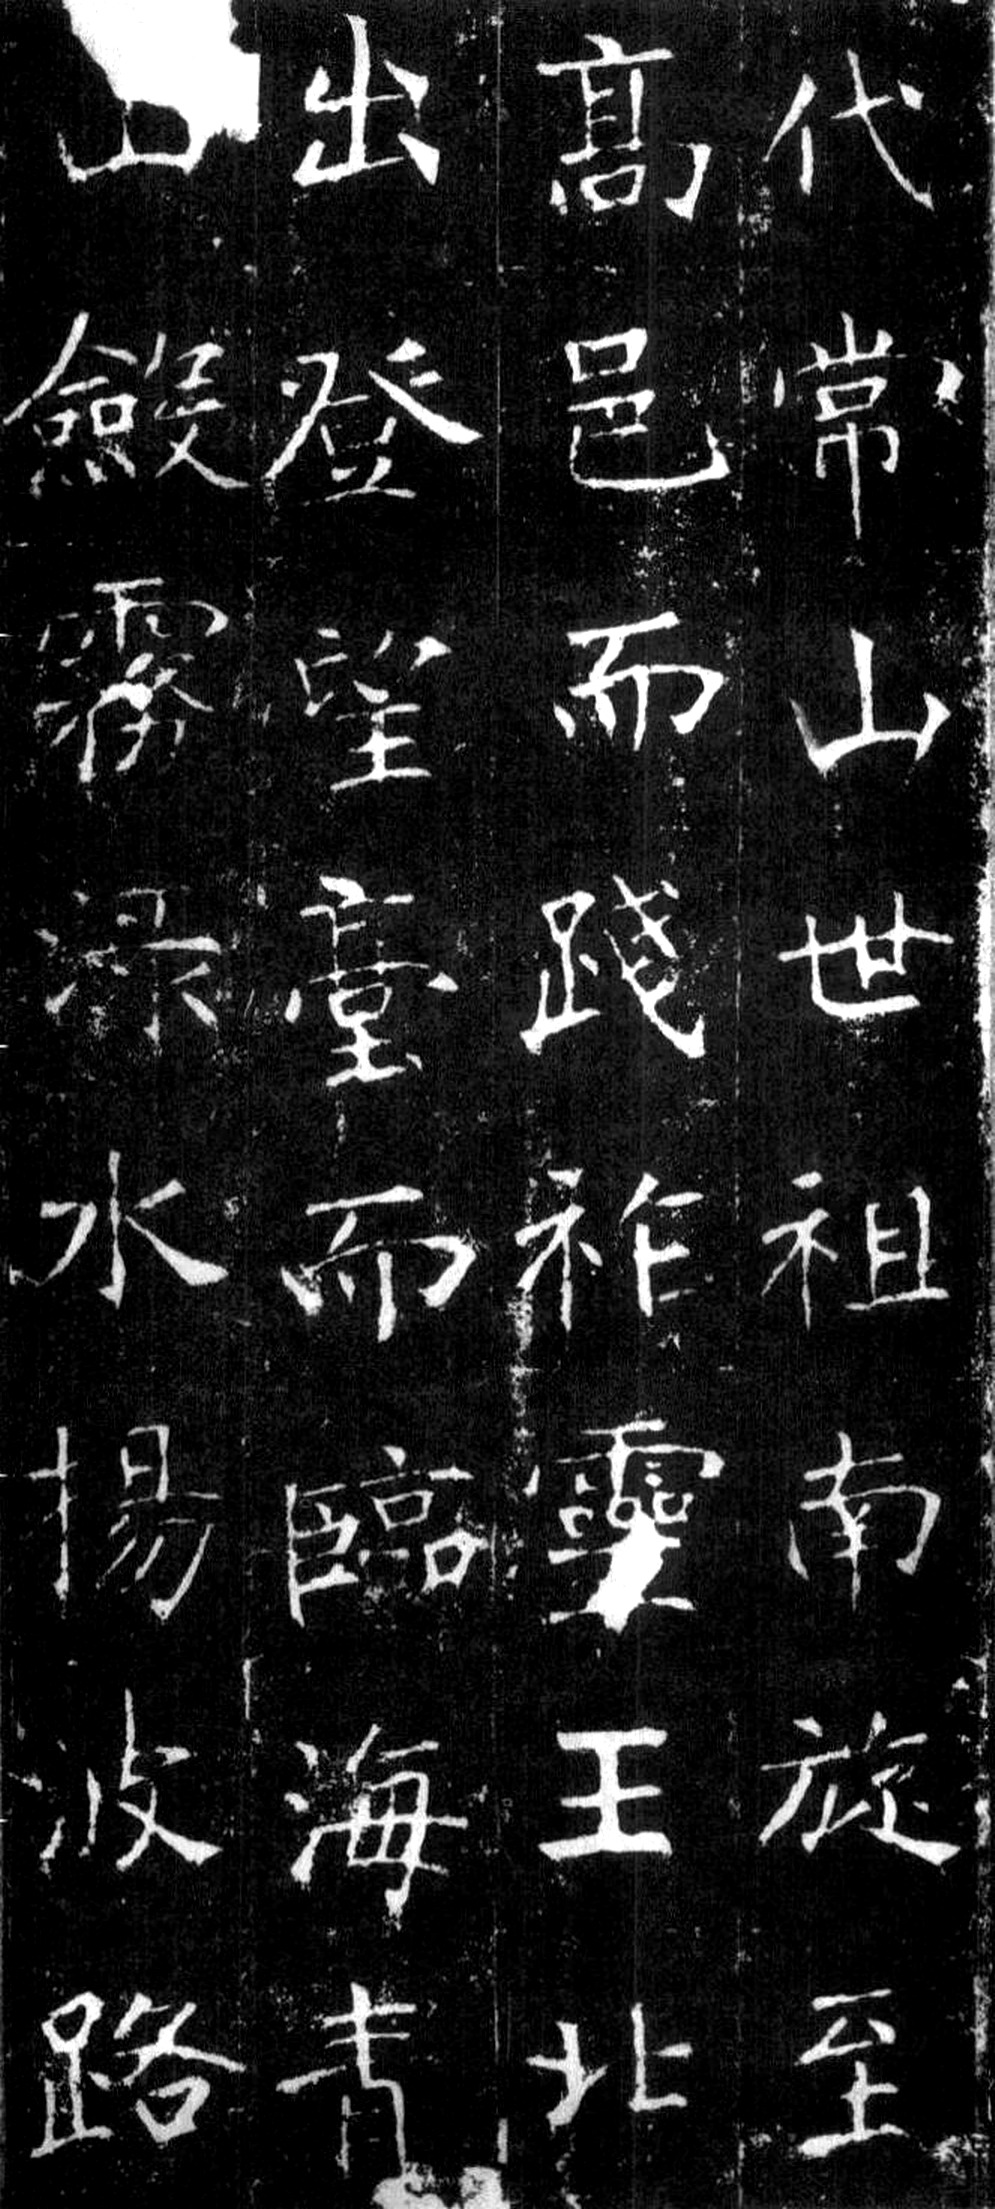 代常山世祖南旋至
高邑而踐祚靈王北
出登望臺而臨海青
山斂霧淥水揚波路